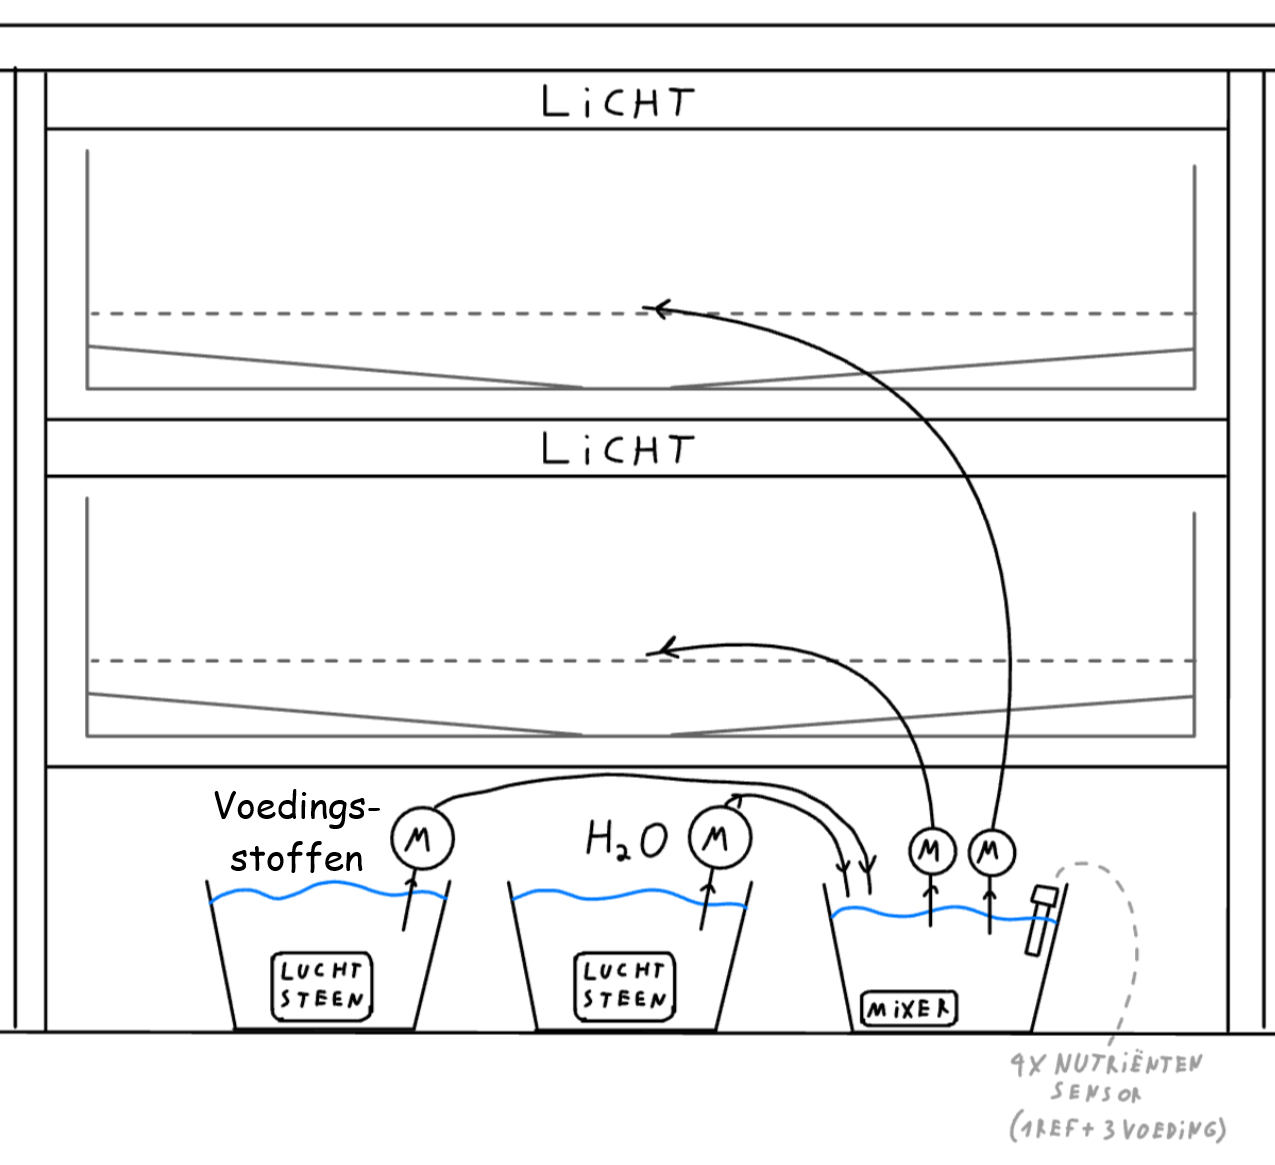 LiCHT
LiCHT
Voedings-
stoffen
M
H₂O
M
M
M
LUCHT
STEEN
LUCHT
STEEN
MiXER
4X NUTRiËNTEN
SENSOR
(1REF + 3 VOEDiNG)